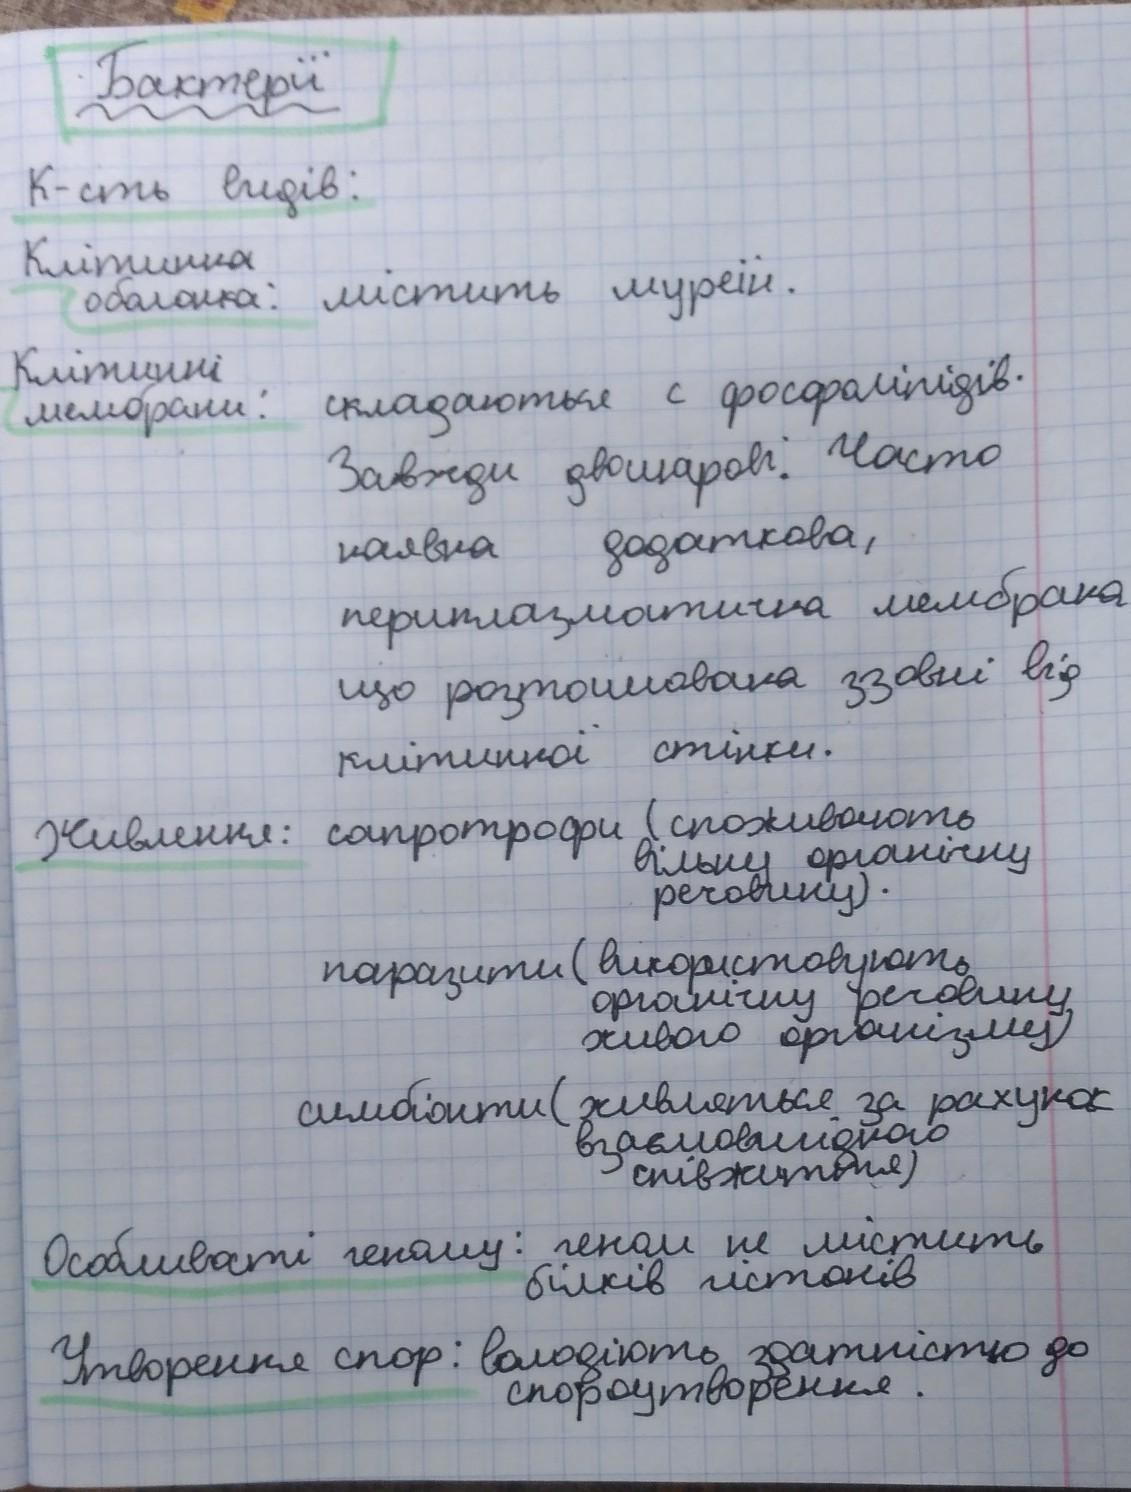 Бактерії
К-сть видів:
Клітинна
оболонка: містить муреїн.
Клітинні
мембрани: складаються с фосфоліпідів.
Завжди двошарові. Часто
наявна додаткова,
периплазматична мембрана
що розташована ззовні від
клітинної стінки.
Живлення: сапротрофи (споживають
вільну органічну
речовину).
паразити (використовують
органічну речовину
живого організму)
симбіонти (живляться за рахунок
взаємовигідного
співжиття)
Особливості геному: геном не містить
білків гістонів
Утворення спор: володіють здатністю до
спороутворення.